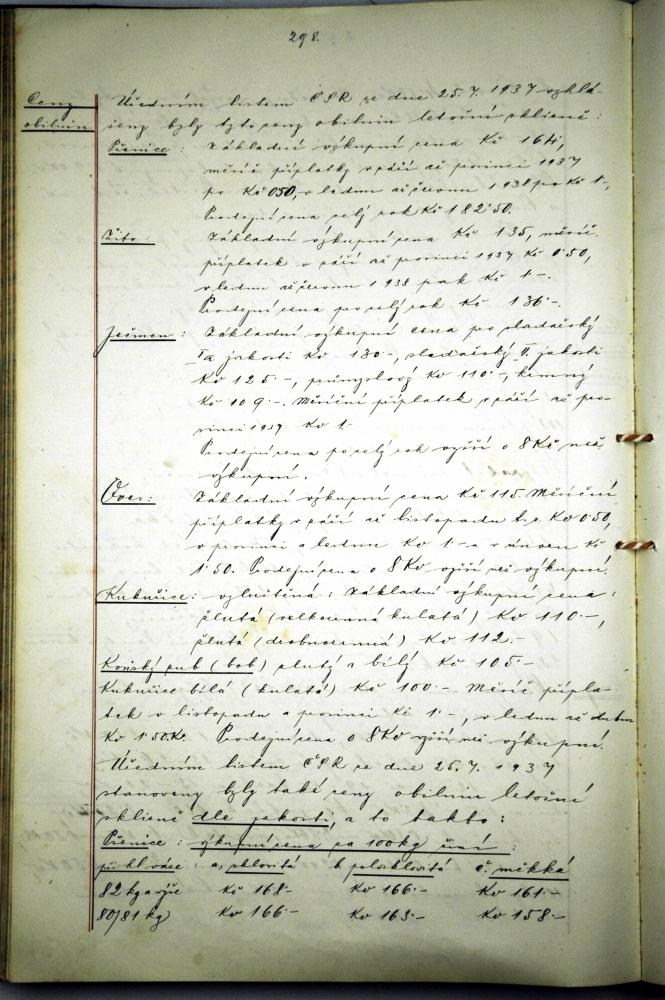 298.
Ceny
obilnin
Úředním listem ČSR ze dne 25.7.1937 vyhlá-
šeny byly tyto ceny obilnin letošní sklizně:
Pšenice: Základní výkupní cena Kč 164,
měsíč. příplatky v září až prosinci 1937
po Kč 0'50, v lednu až červnu 1938 po Kč 1-,
Prodejní cena celý rok Kč 182'50.
Žito: Základní výkupní cena Kč 135, měsíč.
příplatek v září až prosinci 1937 Kč 0'50,
v lednu až červnu 1938 pak Kč 1-.
Prodejní cena po celý rok Kč 136'-.
Ječmen: Základní výkupní cena po sladařský
Ia jakosti Kč 130-, sladařský II. jakosti
Kč 125.-, průmyslový Kč 110-, krmný
Kč 109.-. Měsíční příplatek v září až pro-
sinci 1937 Kč 1.-
Prodejní cena po celý rok vyšší o 8 Kč než
výkupní.
Oves: Základní výkupní cena Kč 115. Měsíční
příplatky v září až listopadu t.r. Kč 0'50,
v prosinci a lednu Kč 1'- a v únoru Kč
1'50. Prodejní cena o 8 Kč vyšší než výkupní.
Kukuřice: vyluštěná: Základní výkupní cena:
žlutá (velkozrnná kulatá) Kč 110'-,
žlutá (drobnozrnná) Kč 112.-
Koňský zub (bob) žlutý a bílý Kč 105.-
Kukuřice bílá (kulatá) Kč 100'- Měsíč. přípla-
tek v listopadu a prosinci Kč 1'-, v lednu až dubnu
Kč 1'50 K. Prodejní cena o 8 Kč vyšší než výkupní.
Úředním listem ČSR ze dne 25.7.1937
stanoveny byly také ceny obilnin letošní
sklizně dle jakosti, a to takto:
Pšenice: výkupní cena za 100 kg činí:
při hl váze: a, sklovitá b, polosklovitá c. měkká
82 kg a výše Kč 168- Kč 166.- Kč 161.-
80/81 kg Kč 166'- Kč 163.- Kč 158.-